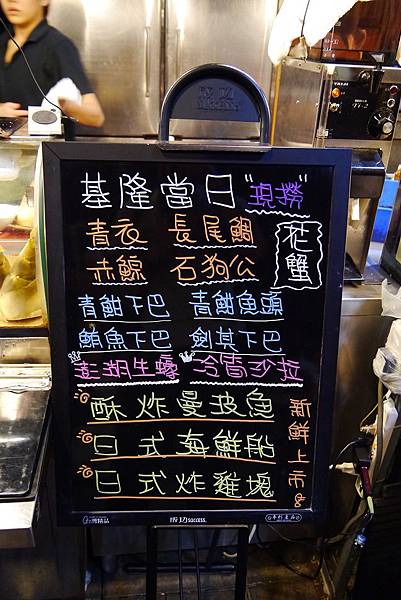 基隆當日"現撈"
青衣 長尾鯛
赤鯮 石狗公
花蟹
青魽下巴 青魽魚頭
鮪魚下巴 劍其下巴
澎湖生蠔 冷霄沙拉
酥炸曼波魚
日式海鮮船
日式炸雞塊
新鮮上市
成功 success.